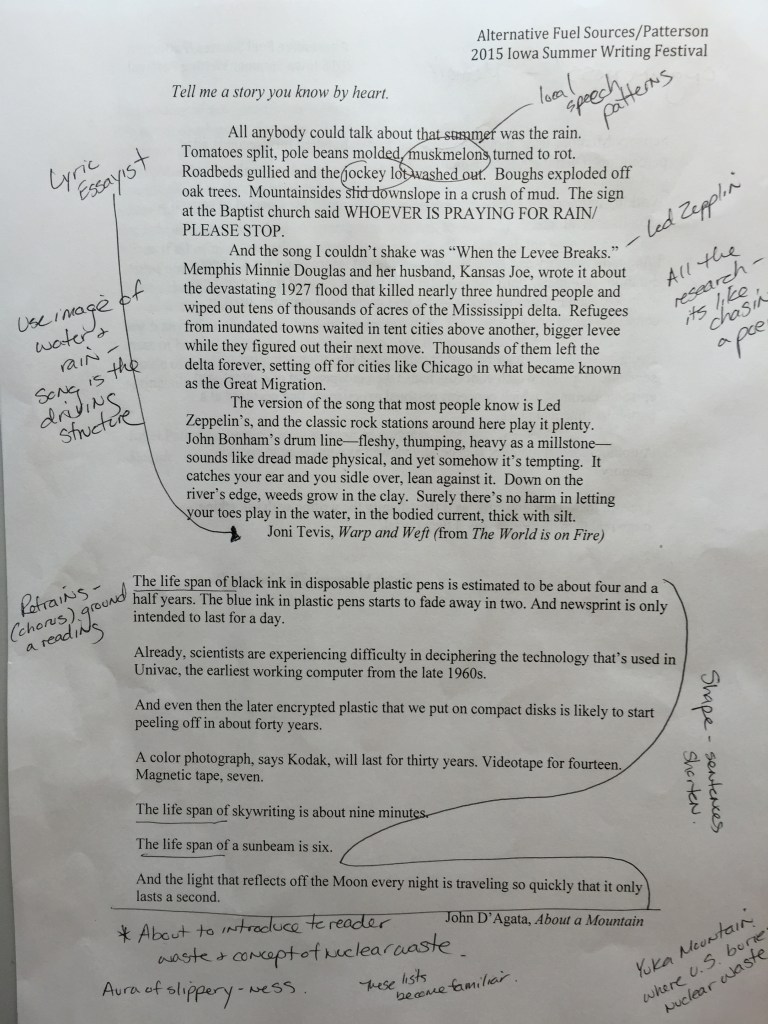 Alternative Fuel Sources/Patterson
2015 Iowa Summer Writing Festival
Tell me a story you know by heart.
local
speech
patterns
All anybody could talk about that summer was the rain.
Tomatoes split, pole beans molded, muskmelons turned to rot.
Roadbeds gullied and the jockey lot washed out. Boughs exploded off
oak trees. Mountainsides slid downslope in a crush of mud. The sign
at the Baptist church said WHOEVER IS PRAYING FOR RAIN/
PLEASE STOP.
Lyric
Essayist
And the song I couldn't shake was “When the Levee Breaks.”
Memphis Minnie Douglas and her husband, Kansas Joe, wrote it about
the devastating 1927 flood that killed nearly three hundred people and
wiped out tens of thousands of acres of the Mississippi delta. Refugees
from inundated towns waited in tent cities above another, bigger levee
while they figured out their next move. Thousands of them left the
delta forever, setting off for cities like Chicago in what became known
as the Great Migration.
– Led Zepplin
All the
research –
its like
chasin
a poe
Use image of
water &
rain –
song is the
driving
structure
The version of the song that most people know is Led
Zeppelin's, and the classic rock stations around here play it plenty.
John Bonham's drum line—fleshy, thumping, heavy as a millstone—
sounds like dread made physical, and yet somehow it's tempting. It
catches your ear and you sidle over, lean against it. Down on the
river's edge, weeds grow in the clay. Surely there's no harm in letting
your toes play in the water, in the bodied current, thick with silt.
Joni Tevis, Warp and Weft (from The World is on Fire)
Refrains –
(chorus) ground
a reading
The life span of black ink in disposable plastic pens is estimated to be about four and a
half years. The blue ink in plastic pens starts to fade away in two. And newsprint is only
intended to last for a day.
Already, scientists are experiencing difficulty in deciphering the technology that's used in
Univac, the earliest working computer from the late 1960s.
And even then the later encrypted plastic that we put on compact disks is likely to start
peeling off in about forty years.
A color photograph, says Kodak, will last for thirty years. Videotape for fourteen.
Magnetic tape, seven.
The life span of skywriting is about nine minutes.
The life span of a sunbeam is six.
And the light that reflects off the Moon every night is traveling so quickly that it only
lasts a second.
John D'Agata, About a Mountain
Shape – sentences
shorten.
* About to introduce to reader
waste & concept of nuclear waste –
Aura of slippery-ness.
These lists
become familiar.
Yuka Mountain
where U.S. burie
nuclear waste